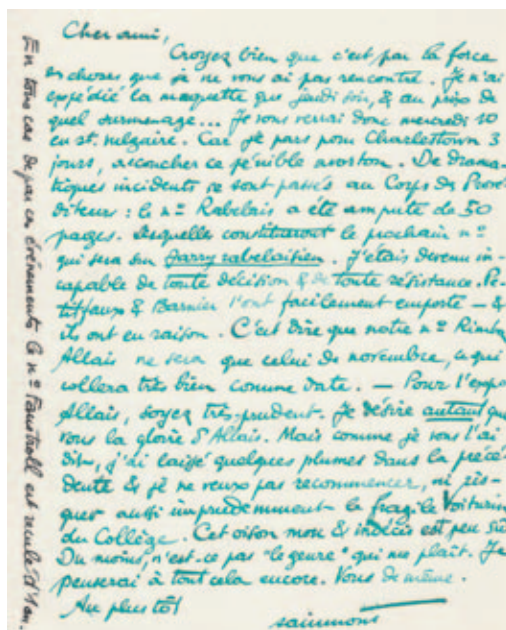 Cher ami,
Croyez bien que c'est par la force
des choses que je ne vous ai pas rencontré. Je n'ai
expédié la maquette que jeudi soir, & au prix de
quel surmenage... Je vous verrai donc mercredi 10
en st. vulgaire. Car je pars pour Charlestown 3
jours, accoucher ce pénible avorton. De drama-
tiques incidents se sont passés au Corps des Prové-
diteurs : le nº Rabelais a été amputé de 50
pages. Lesquelles constitueront le prochain nº
qui sera un Jarry rabelaisien. J'étais devenu in-
capable de toute décision & de toute résistance. Pe-
tifaux & Barnier l'ont facilement emporté — &
ils ont eu raison. C'est dire que notre nº Rimb.
Allais ne sera que celui de novembre, ce qui
collera très bien comme date. — Pour l'expo
Allais, soyez très prudent. Je désire autant que
vous la gloire d'Allais. Mais comme je vous l'ai
dit, j'ai laissé quelques plumes dans la précé-
dente & je ne veux pas recommencer, ni ris-
quer aussi imprudemment la fragile Voiturin
du Collège. Cet oison mou & indécis est peu sûr
Du moins, n'est-ce pas "le genre" qui me plaît. Je
penserai à tout cela encore. Vous de même.
Au plus tôt
sainmont
En tous cas de par ces événements le nº Faustroll est reculé d'1 an.